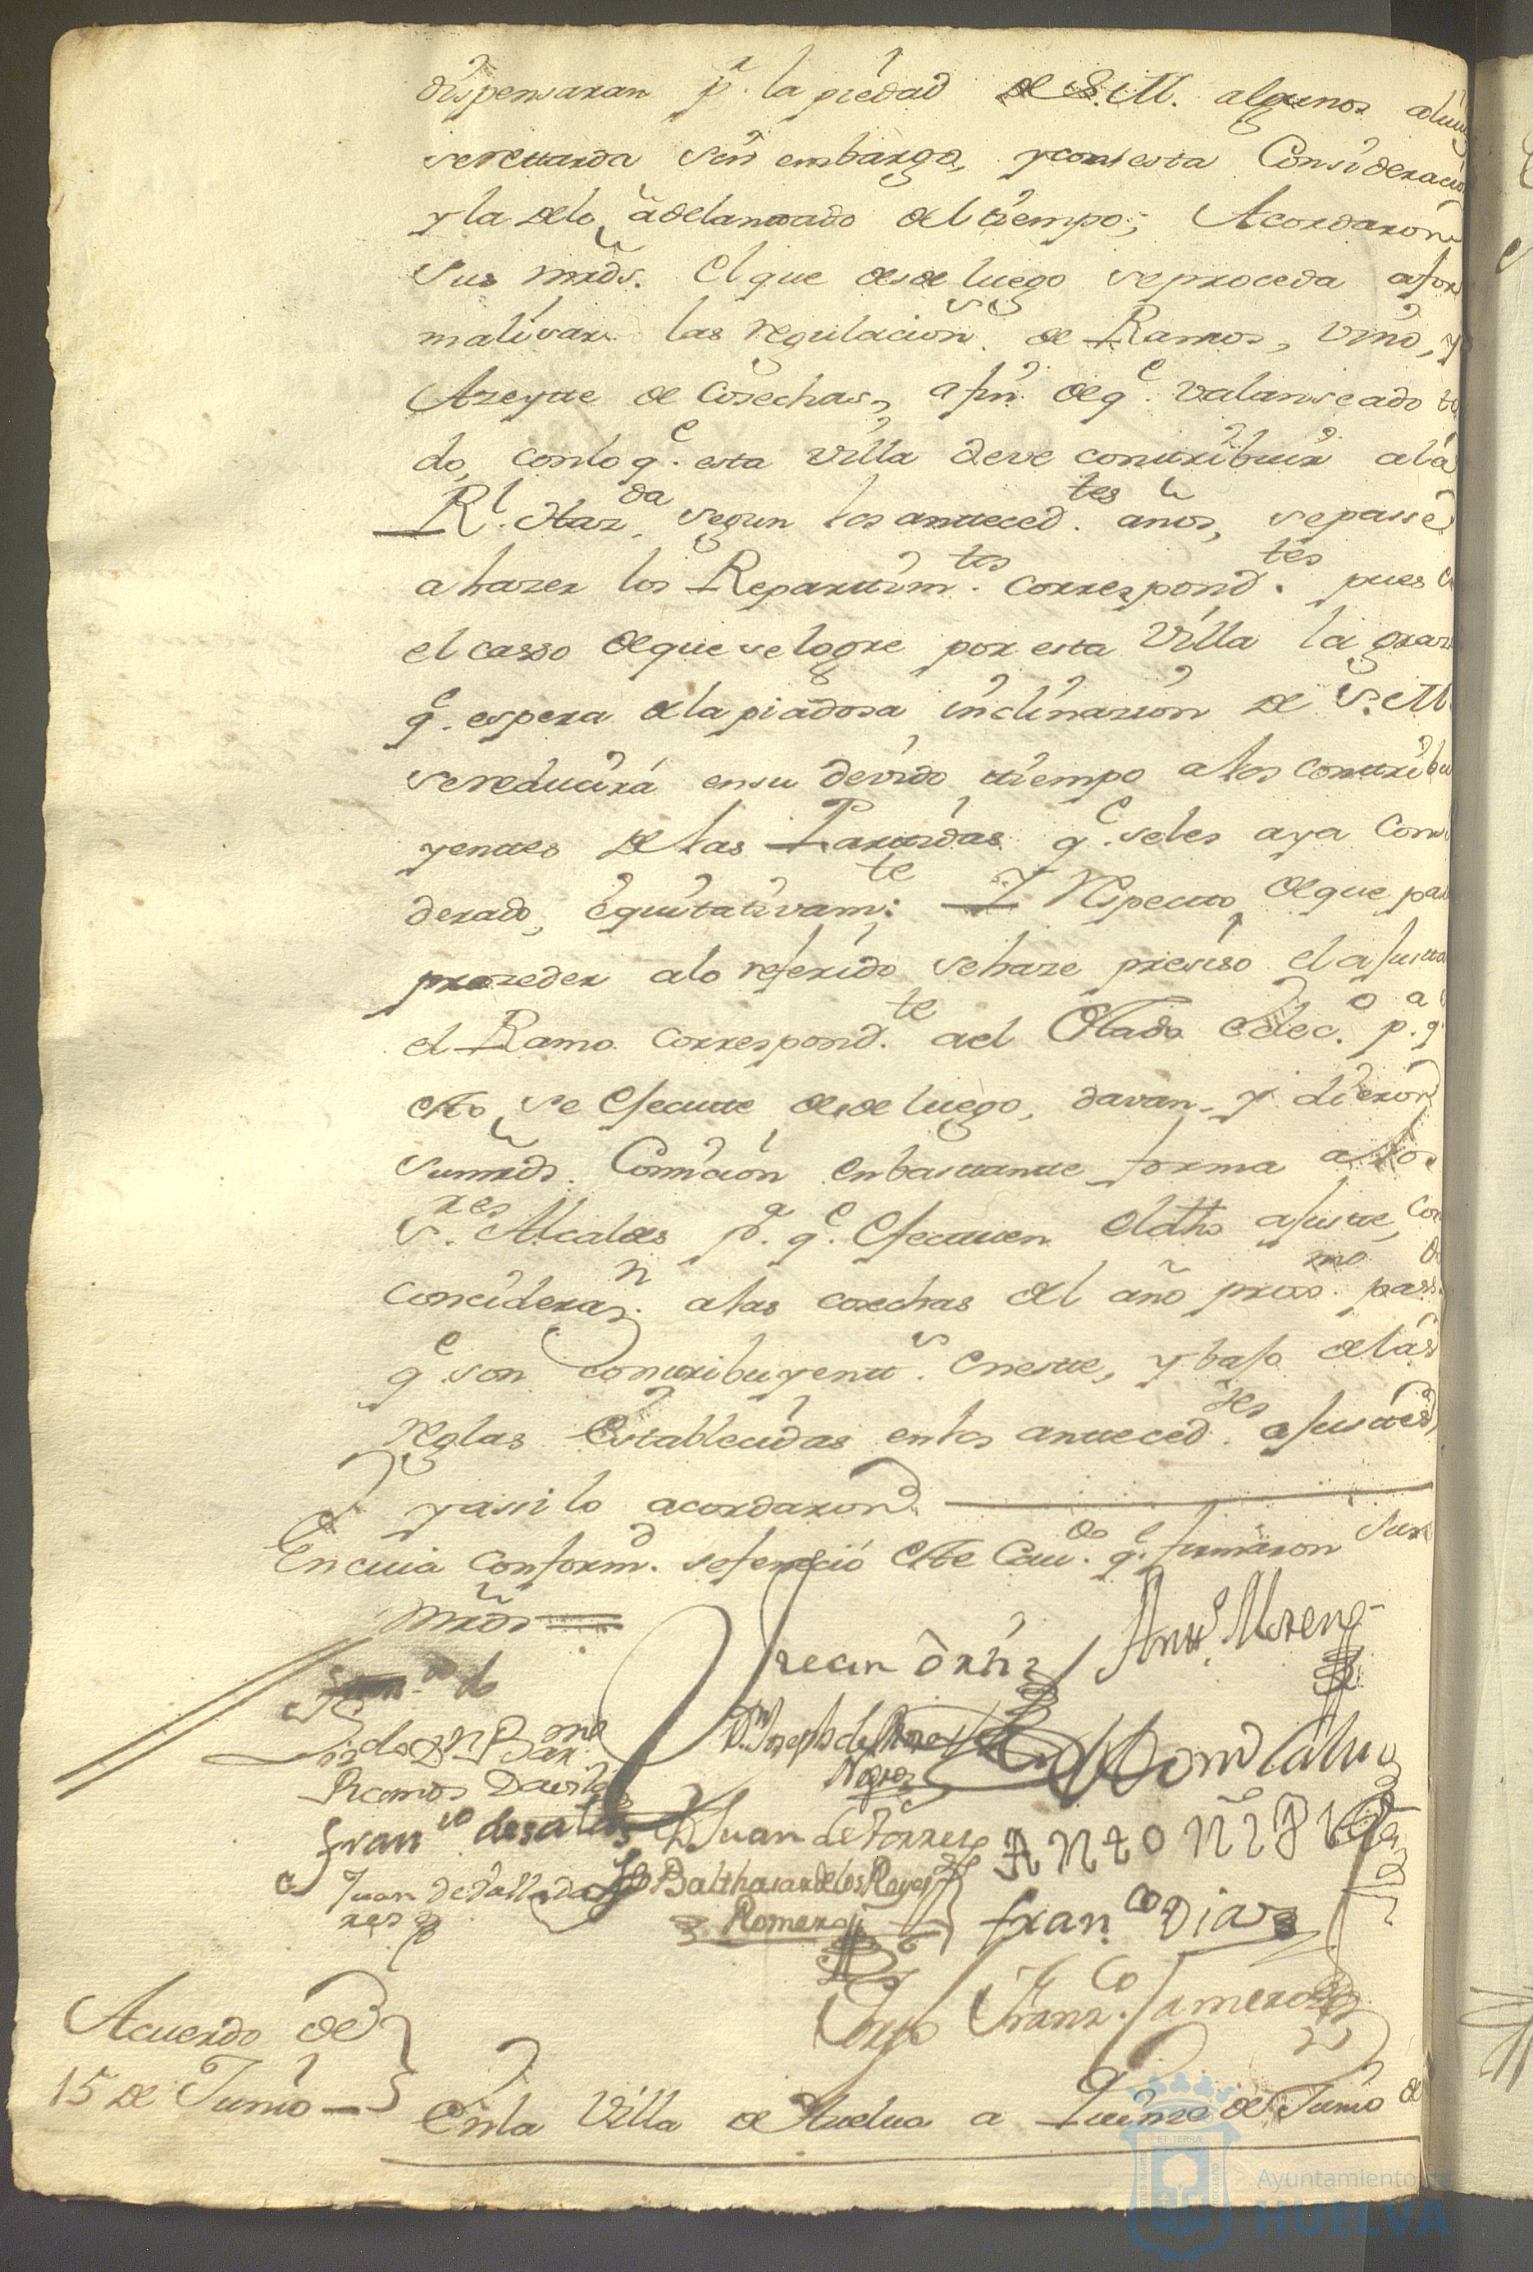 dispensaran p.r la piedad de S.M. algunos
se retarda sin embargo, y con esta Consideracio
y la de lo adelantado del tiempo; Acordaron
sus mrds. El que desde luego se proceda a for
malisar las regulacion.s de Ramos, vino, y
Azeyte de Cosechas, a fin de q.e valanseado to
do, con lo q.e esta villa deve contribuir a la
R.l Haz.da segun los anteced.tes años, se passe
a hazer los Repartim.tos correspond.tes pues
el casso de que se logre por esta Villa la grac
q.e espera de la piadosa inclinazion de S.M.
se reducirá en su devido tiempo a los contribu
yentes de las Partidas q.e se les aya Consi
derado, equitativam.te Y Respecto, de que pa
proceder a lo referido se haze presiso el ajusta
el Ramo correspond.te a el Estado Eclec.o p.a q
esto se Efecute desde luego, davan, y dieron
sus mrds. Comicion en bastante forma a los
S.res Alcaldes p.a q.e Efecuten el dho ajuste, con
concidera.n a las cosechas del año proxo.mo pass.do
q.e son contribuyent.s en este, y bajo de las
reglas Establecidas en los anteced.tes ajustes,
y assi lo acordaron
En cuia conformd. se feneció este Cav.do q.e firmaron sus
mrds
Juan Ortiz Antt.o Moreno
Fran.co de
D.n Joseph de
Ramos Davila
Fran.co de salas Juan de Torres Antonio
Juan de Valladares Balthasar de los Reyes
Romero Fran.co Dias
Franz.co
Acuerdo de
15 de Junio
En la Villa de Huelva a Quinze de Junio de
Ayuntamiento de
HUELVA